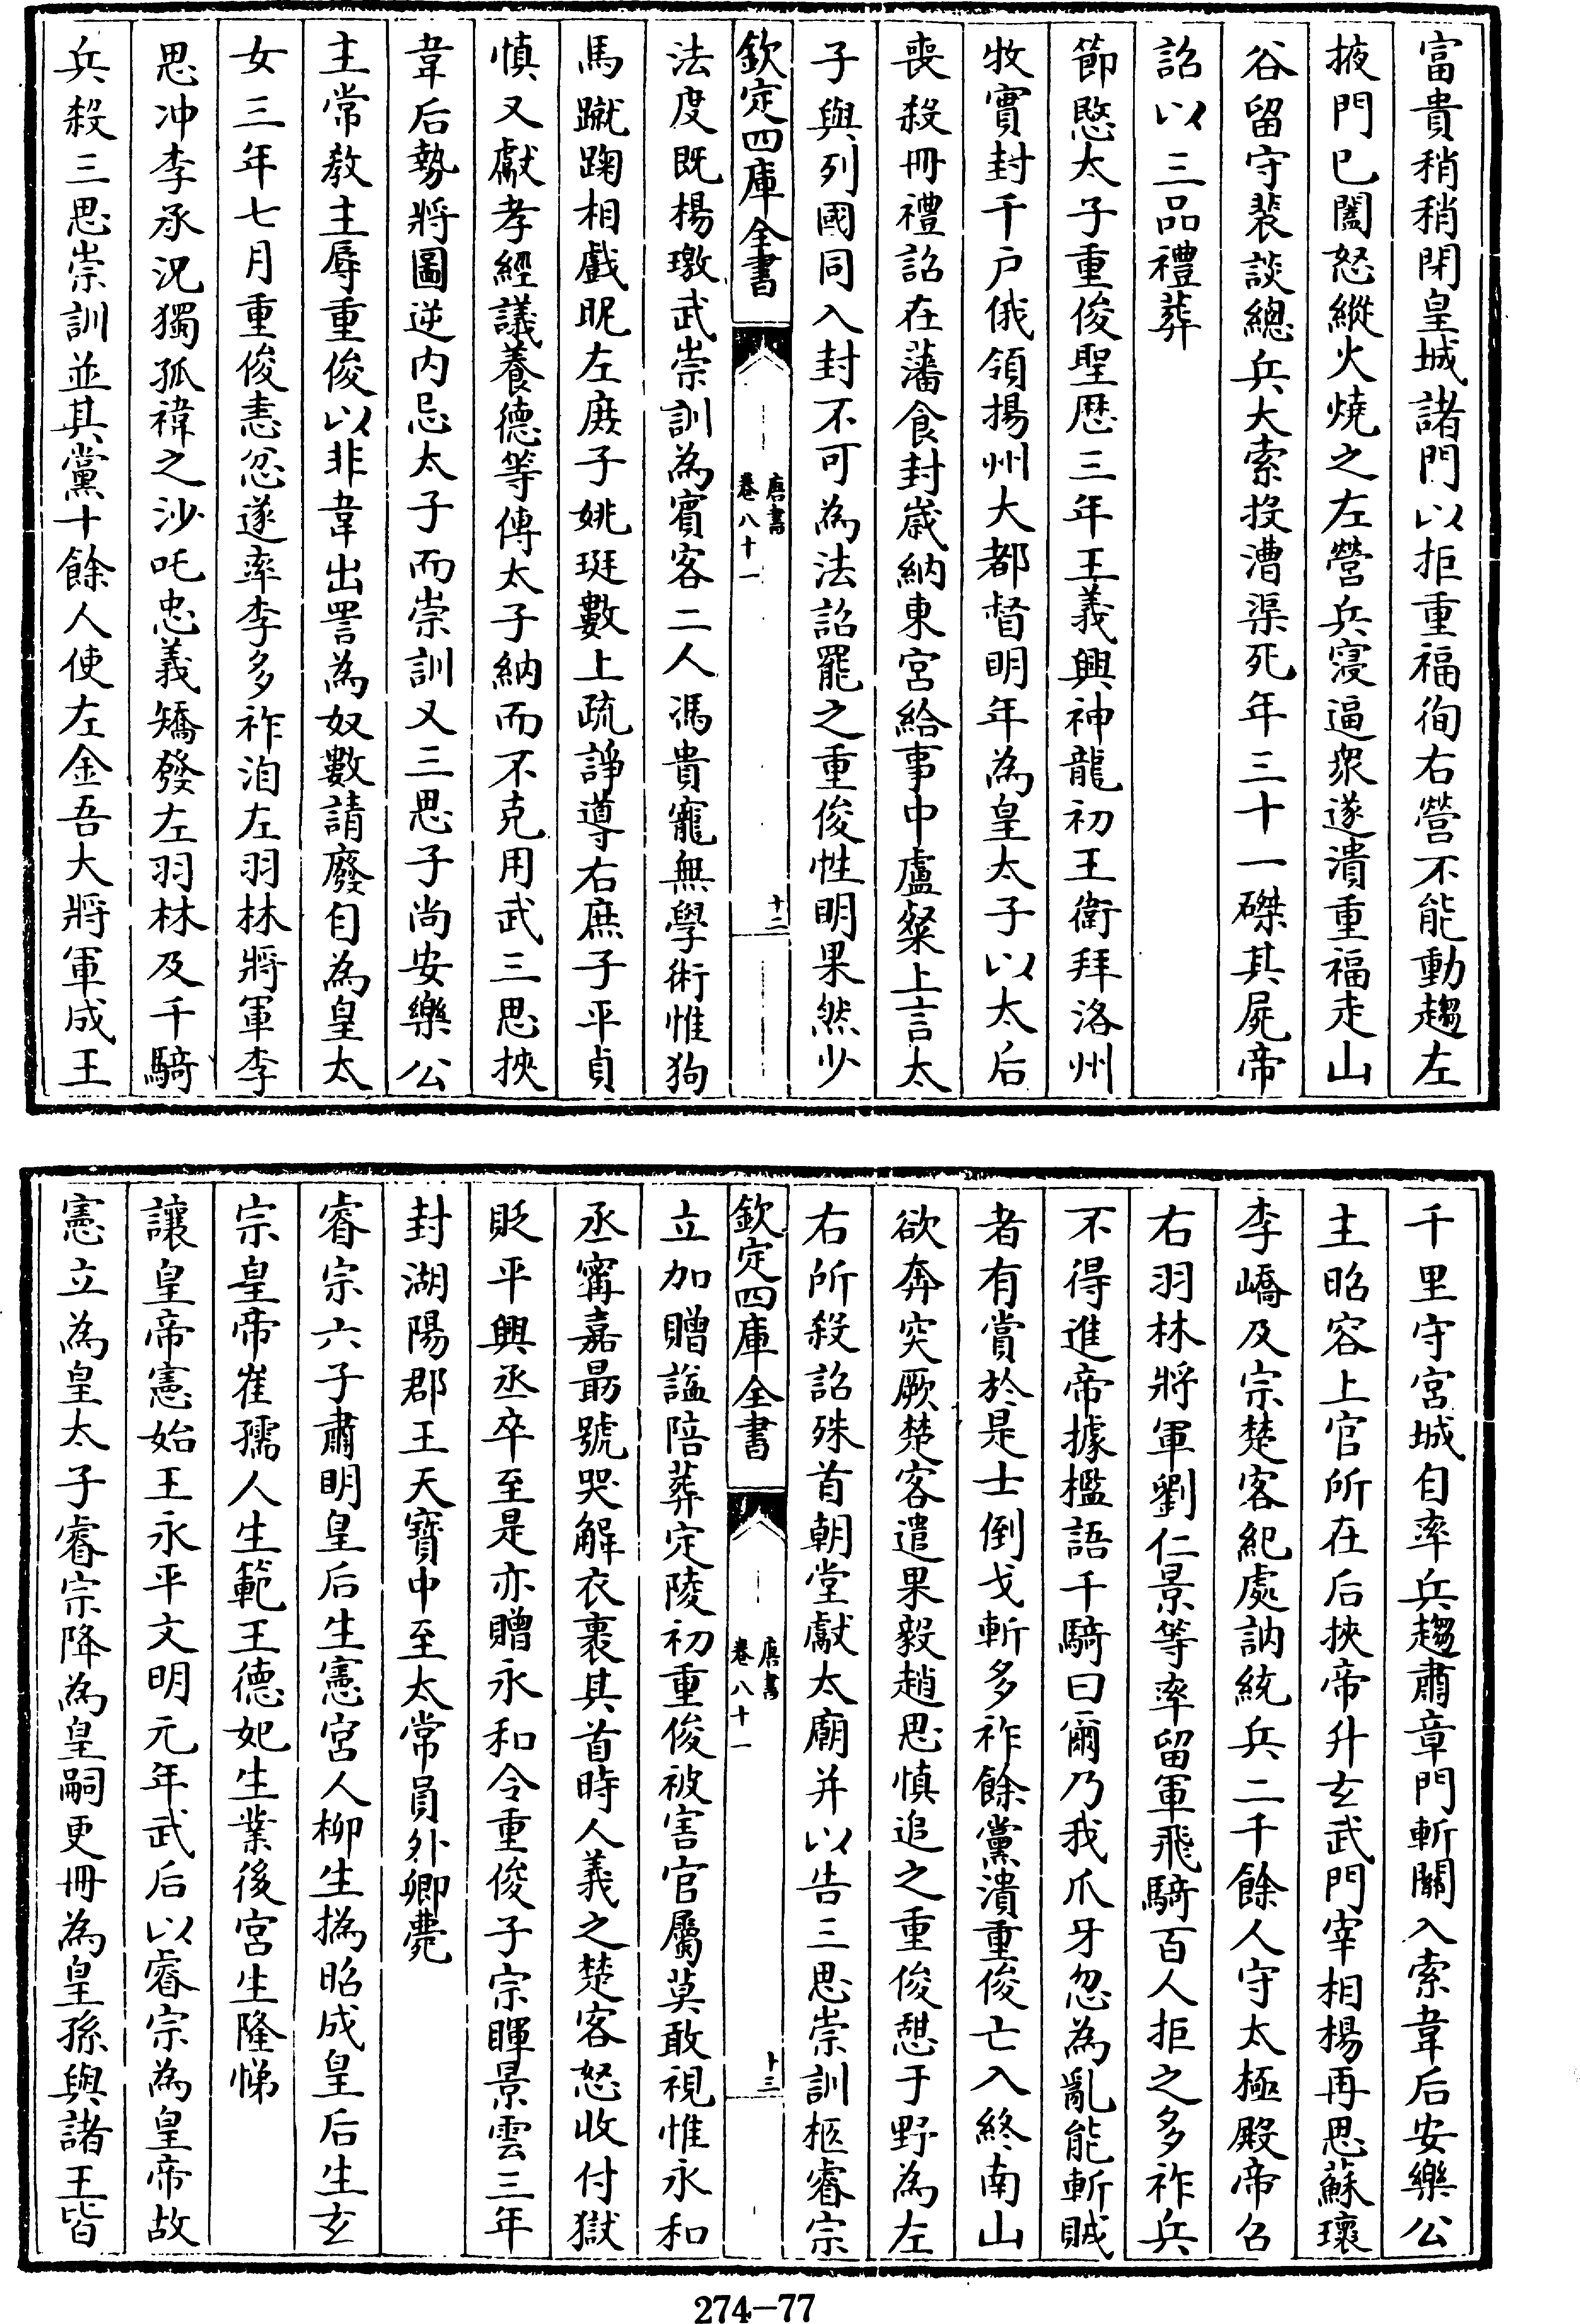 富貴稍稍閉皇城諸門以拒重福徇右營不能動趨左
掖門已闔怒縱火燒之左營兵寖逼衆遂潰重福走山
谷留守裴談總兵大索投漕渠死年三十一磔其屍帝
詔以三品禮葬
節愍太子重俊聖厯三年王義興神龍初王衛拜洛州
牧實封千户俄領揚州大都督明年為皇太子以太后
喪殺冊禮詔在藩食封歲納東宮給事中盧粲上言太
子與列國同入封不可為法詔罷之重俊性明果然少
欽定四庫全書
唐書
卷八十一
十二
法度既楊璬武崇訓為賓客二人馮貴寵無學術惟狗
馬蹴踘相戲昵左庶子姚珽數上疏諍導右庶子平貞
慎又獻孝經議養德等傳太子納而不克用武三思挾
韋后勢將圖逆内忌太子而崇訓又三思子尚安樂公
主常教主辱重俊以非韋出詈為奴數請廢自為皇太
女三年七月重俊恚忿遂率李多祚洎左羽林將軍李
思冲李承況獨孤禕之沙吒忠義矯發左羽林及千騎
兵殺三思崇訓並其黨十餘人使左金吾大將軍成王
千里守宮城自率兵趨肅章門斬關入索韋后安樂公
主昭容上官所在后挾帝升玄武門宰相楊再思蘇瓌
李嶠及宗楚客紀處訥統兵二千餘人守太極殿帝召
右羽林將軍劉仁景等率留軍飛騎百人拒之多祚兵
不得進帝據檻語千騎曰爾乃我爪牙忽為亂能斬賊
者有賞於是士倒戈斬多祚餘黨潰重俊亡入終南山
欲奔突厥楚客遣果毅趙思慎追之重俊憇于野為左
右所殺詔殊首朝堂獻太廟并以告三思崇訓柩睿宗
欽定四庫全書
唐書
卷八十一
十三
立加贈謚陪葬定陵初重俊被害官屬莫敢視惟永和
丞甯嘉勗號哭解衣裹其首時人義之楚客怒收付獄
貶平興丞卒至是亦贈永和令重俊子宗暉景雲三年
封湖陽郡王天寶中至太常員外卿薨
睿宗六子肅明皇后生憲宮人柳生撝昭成皇后生玄
宗皇帝崔孺人生範王德妃生業後宮生隆悌
讓皇帝憲始王永平文明元年武后以睿宗為皇帝故
憲立為皇太子睿宗降為皇嗣更冊為皇孫與諸王皆
274—77